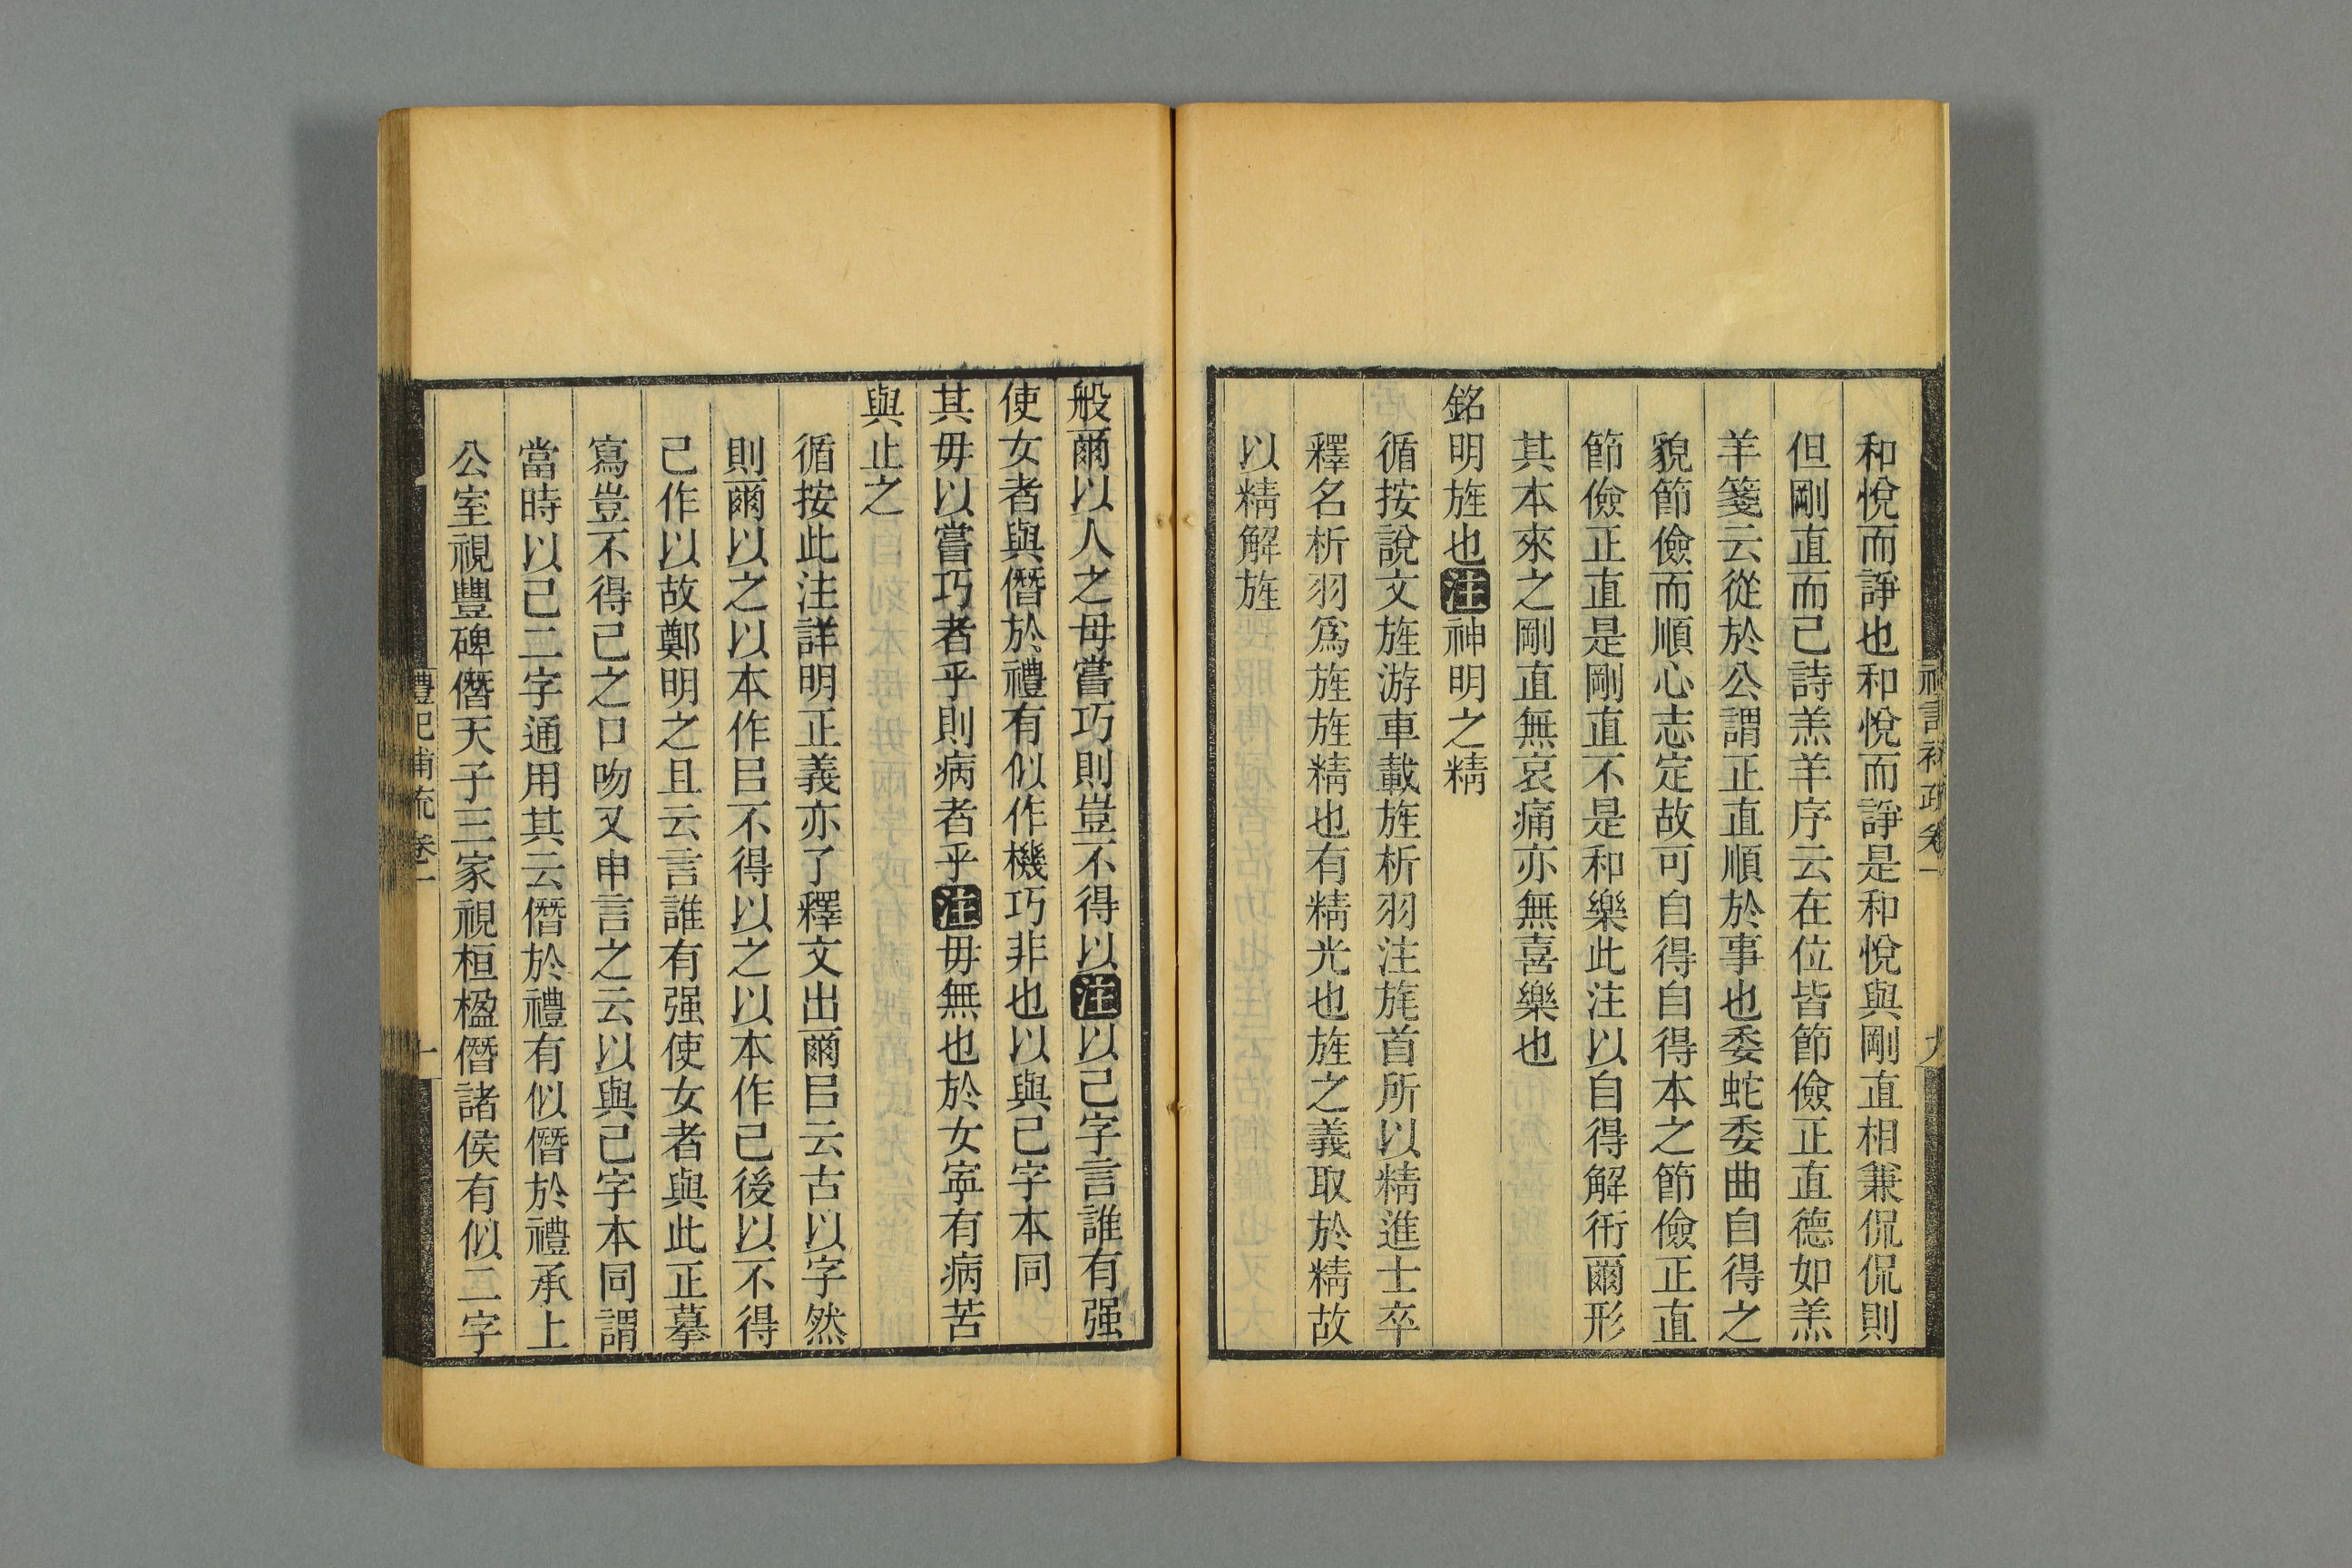 和悅而諍也和悅而諍是和悅與剛直相兼侃侃則
但剛直而已詩羔羊序云在位皆節儉正直德如羔
羊箋云從於公謂正直順於事也委蛇委曲自得之
貌節儉而順心志定故可自得自得本之節儉正直
節儉正直是剛直不是和樂此注以自得解衎爾形
其本來之剛直無哀痛亦無喜樂也
銘明旌也注神明之精
循按說文旌游車載旌析羽注旄首所以精進士卒
釋名析羽爲旌旌精也有精光也旌之義取於精故
以精解旌
禮記補疏 卷一
九
般爾以人之母嘗巧則豈不得以注以己字言誰有强
使女者與僭於禮有似作機巧非也以與己字本同
其毋以嘗巧者乎則病者乎注毋無也於女寍有病苦
與止之
循按此注詳明正義亦了釋文出爾㠯云古以字然
則爾以之以本作㠯不得以之以本作己後以不得
己作以故鄭明之且云言誰有强使女者與此正摹
寫豈不得已之口吻又申言之云以與己字本同謂
當時以己二字通用其云僭於禮有似僭於禮承上
公室視豐碑僭天子三家視桓楹僭諸侯有似二字
禮記補疏 卷一
十